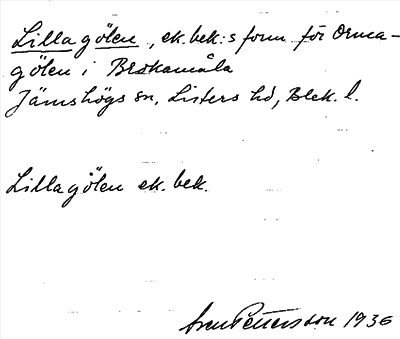 Lilla gölen, ek. bek:s form för Orma-
gölen i Brokamåla
Jämshögs sn, Listers hd, Blek. l.
Lilla gölen ek. bek.
Sven Pettersson 1936